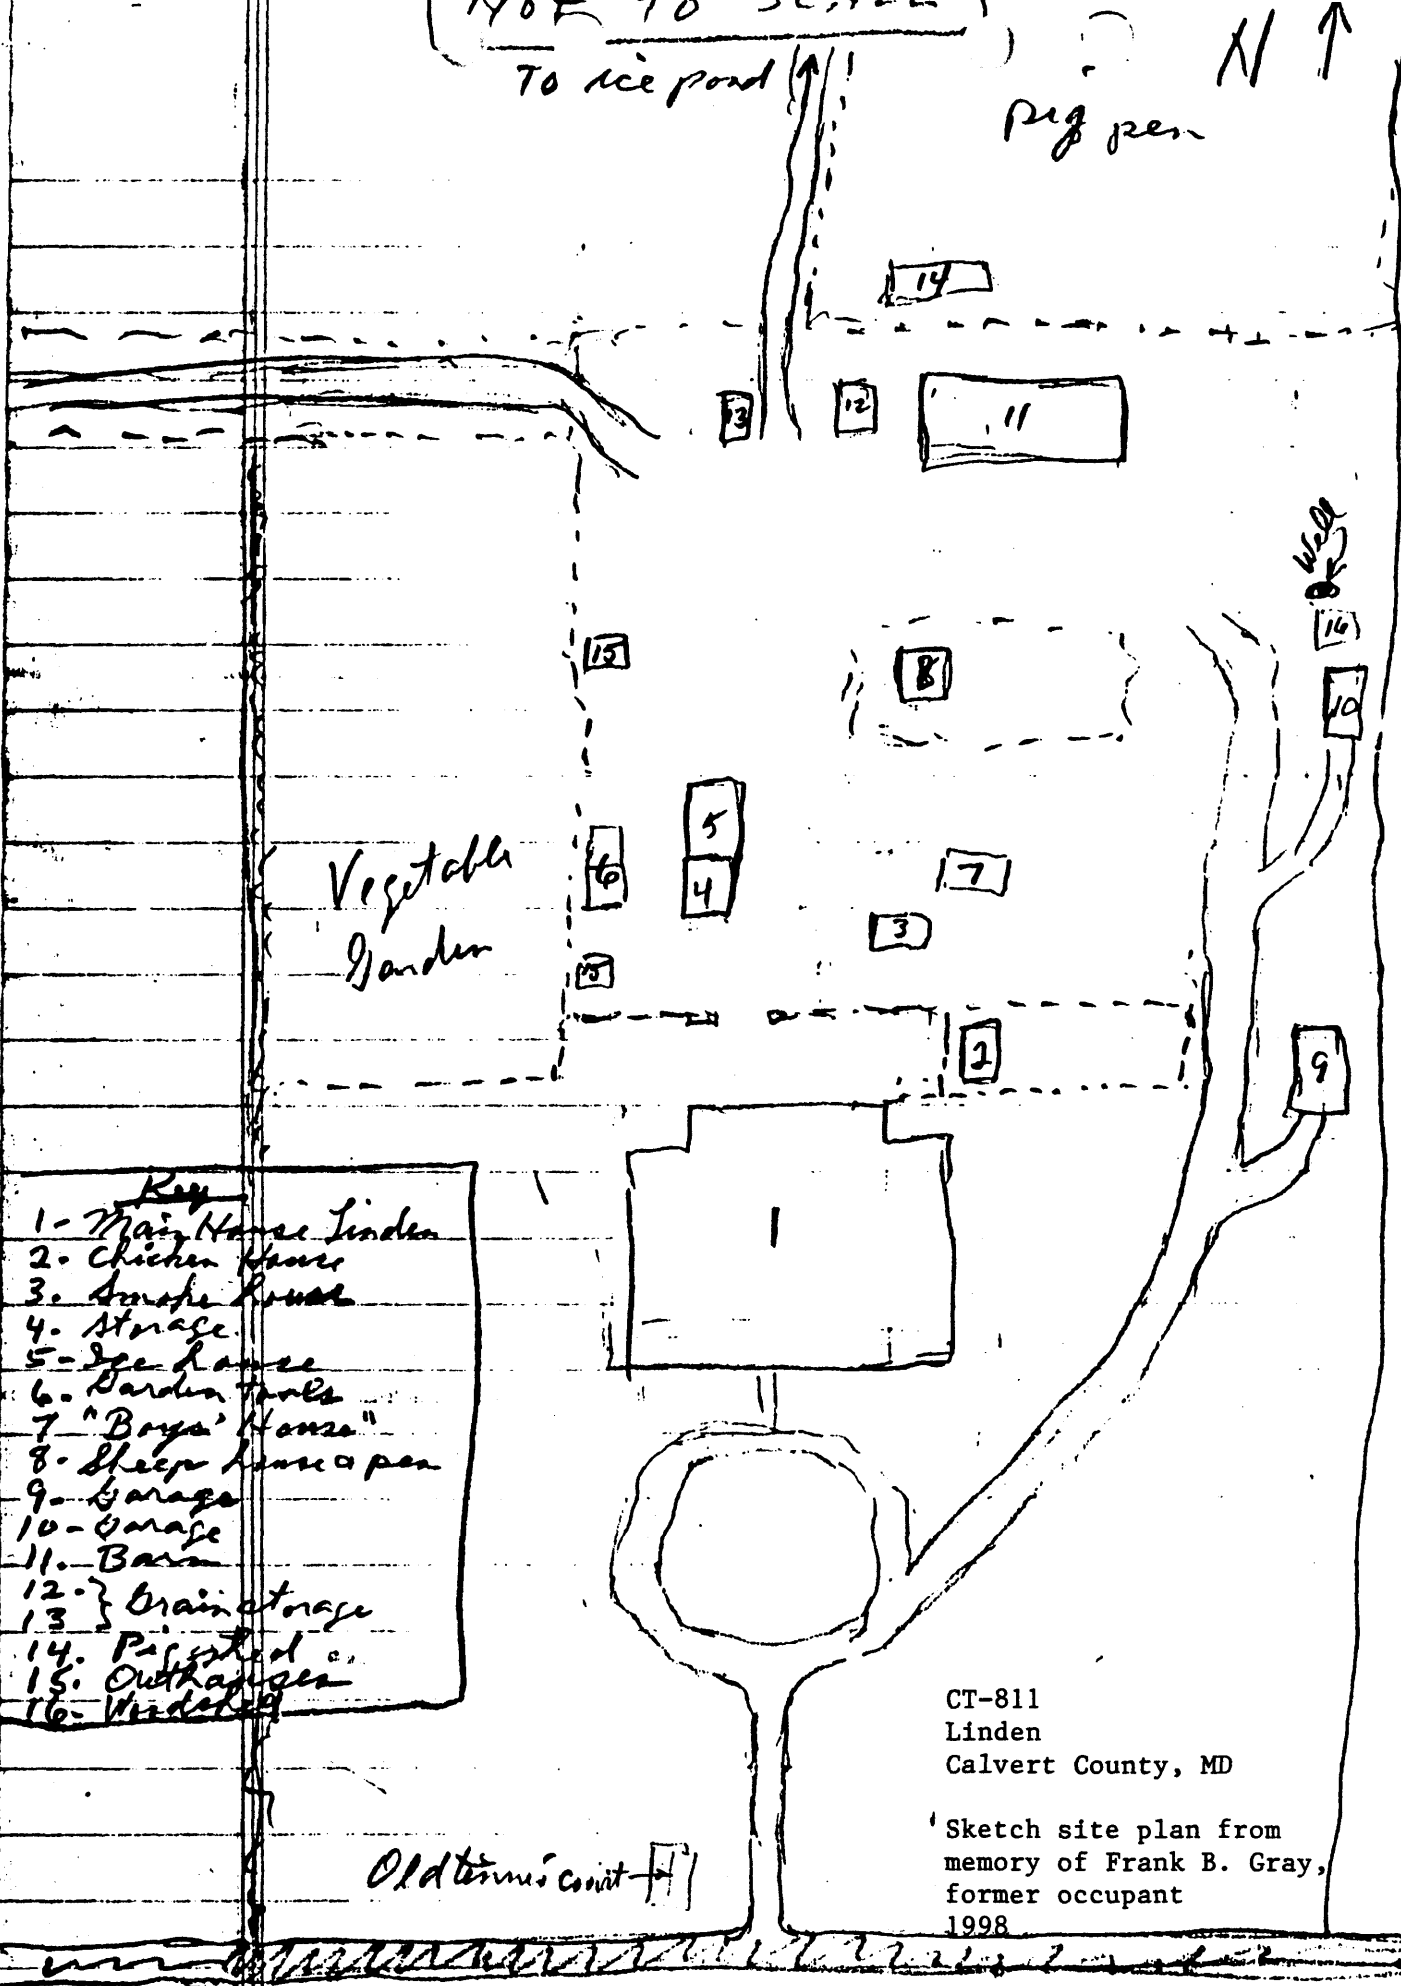 NOT TO SCALE
N
To ice pond
pig pen
14
13
12
11
Well
16
15
8
10
5
6
4
7
3
15
Vegetable
Garden
2
9
1
Key
1- Main House Linden
2. Chicken House
3. Smoke house
4. Storage
5- Ice house
6. Garden tools
7 "Boys' House"
8. Sheep house & pen
9- Garage
10- Garage
11. Barn
12. } Grain storage
13
14. Pig shed
15. Outhouses
16- Woodshed
CT-811
Linden
Calvert County, MD
Sketch site plan from
memory of Frank B. Gray,
former occupant
1998
Old tennis court